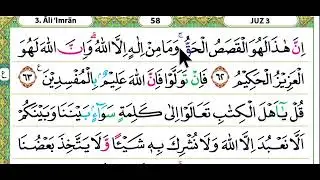 3. Āli 'Imrān 58 JUZ 3
اِنَّ هٰذَا لَهُوَ الْقَصَصُ الْحَقُّ ۚ وَمَا مِنْ اِلٰهٍ اِلَّا اللّٰهُ ۗ وَاِنَّ اللّٰهَ لَهُوَ
الْعَزِيْزُ الْحَكِيْمُ ٦٢ فَاِنْ تَوَلَّوْا فَاِنَّ اللّٰهَ عَلِيْمٌ ۢ بِالْمُفْسِدِيْنَ ٦٣ ع
قُلْ يٰٓاَهْلَ الْكِتٰبِ تَعَالَوْا اِلٰى كَلِمَةٍ سَوَاۤءٍ ۢ بَيْنَنَا وَبَيْنَكُمْ
اَلَّا نَعْبُدَ اِلَّا اللّٰهَ وَلَا نُشْرِكَ بِهٖ شَيْـًٔا وَّلَا يَتَّخِذَ بَعْضُنَا